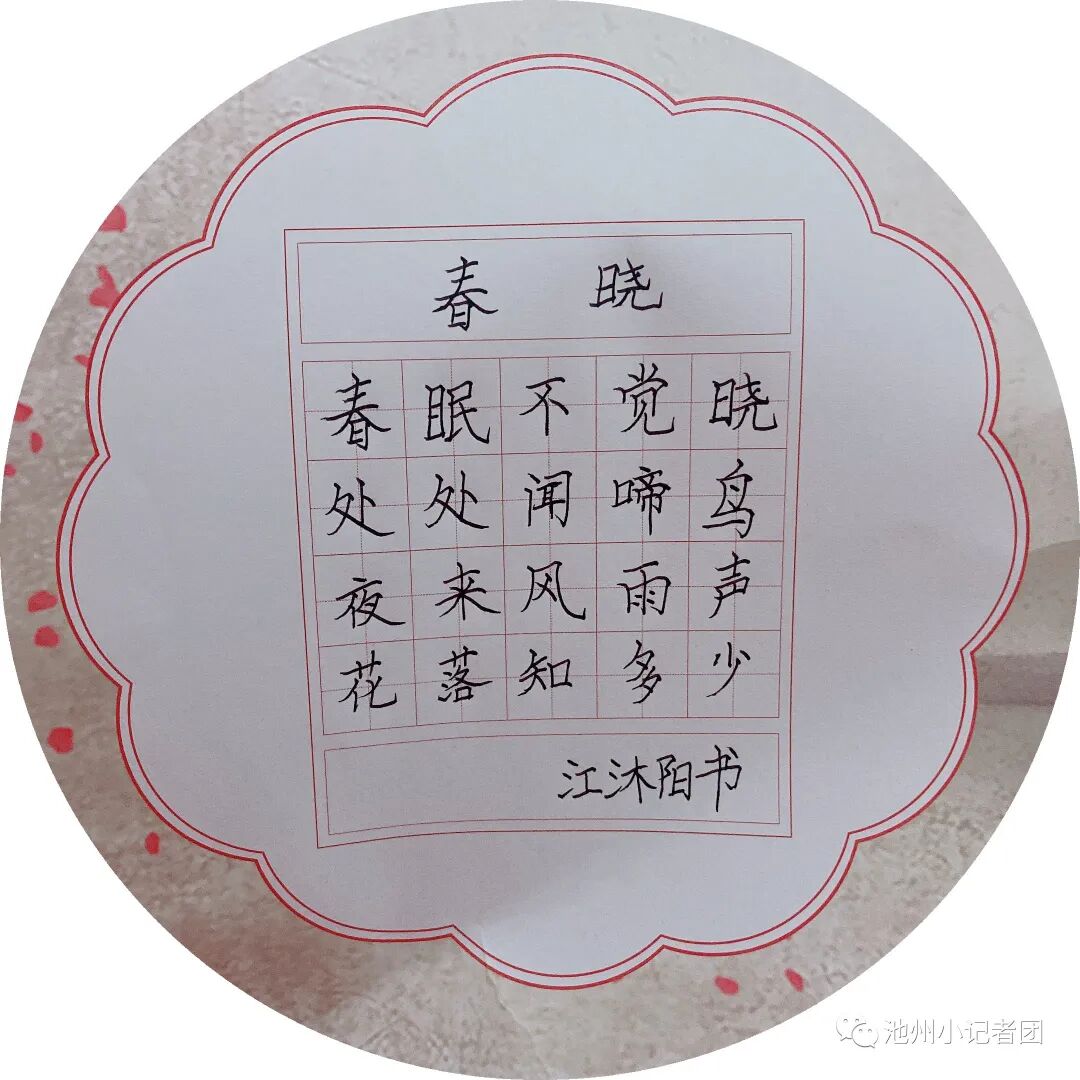 春 晓
春眠不觉晓
处处闻啼鸟
夜来风雨声
花落知多少
江沐阳书
池州小记者团